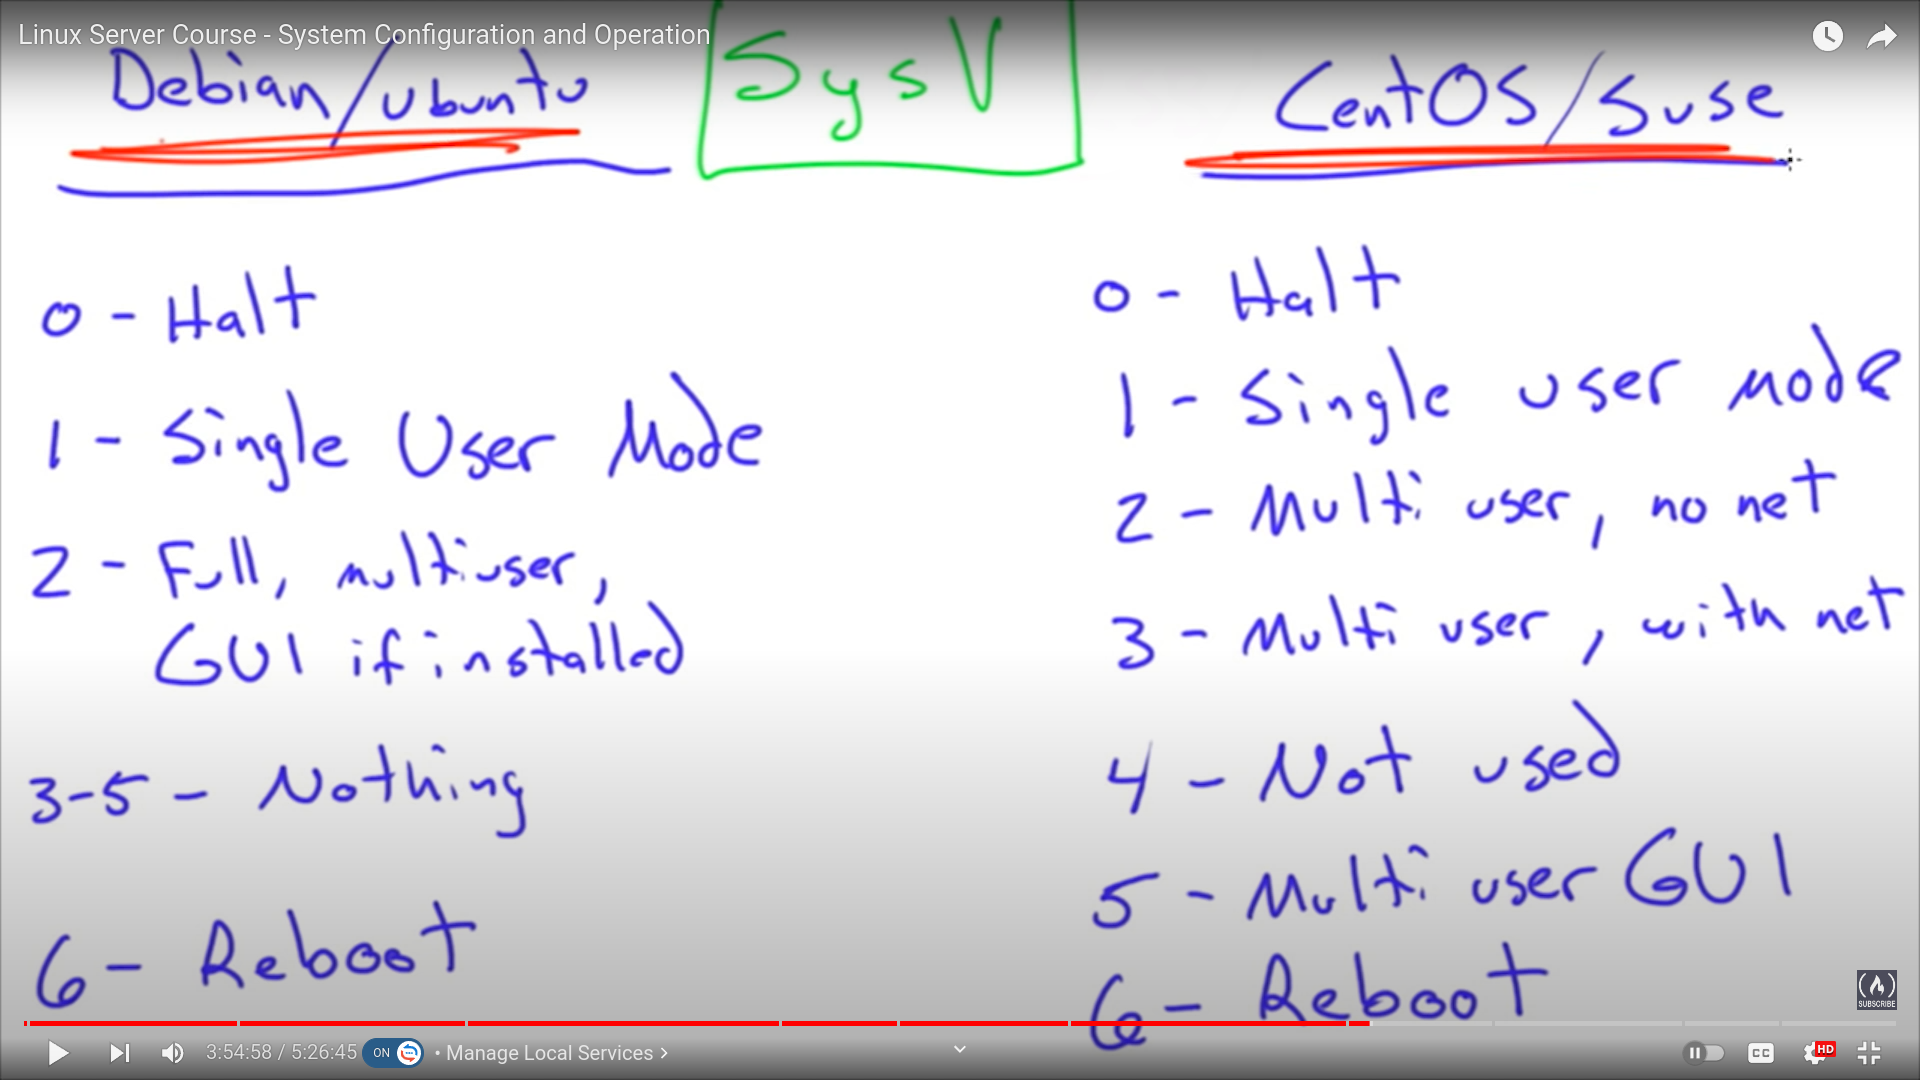 Linux Server Course - System Configuration and Operation
Debian/Ubuntu
SysV
CentOS/Suse
0 - Halt
1 - Single User Mode
2 - Full, multiuser,
GUI if installed
3-5 - Nothing
6 - Reboot
0 - Halt
1 - Single user mode
2 - Multi user, no net
3 - Multi user, with net
4 - Not used
5 - Multi user GUI
6 - Reboot
SUBSCRIBE
3:54:58 / 5:26:45
ON
• Manage Local Services >
CC
HD